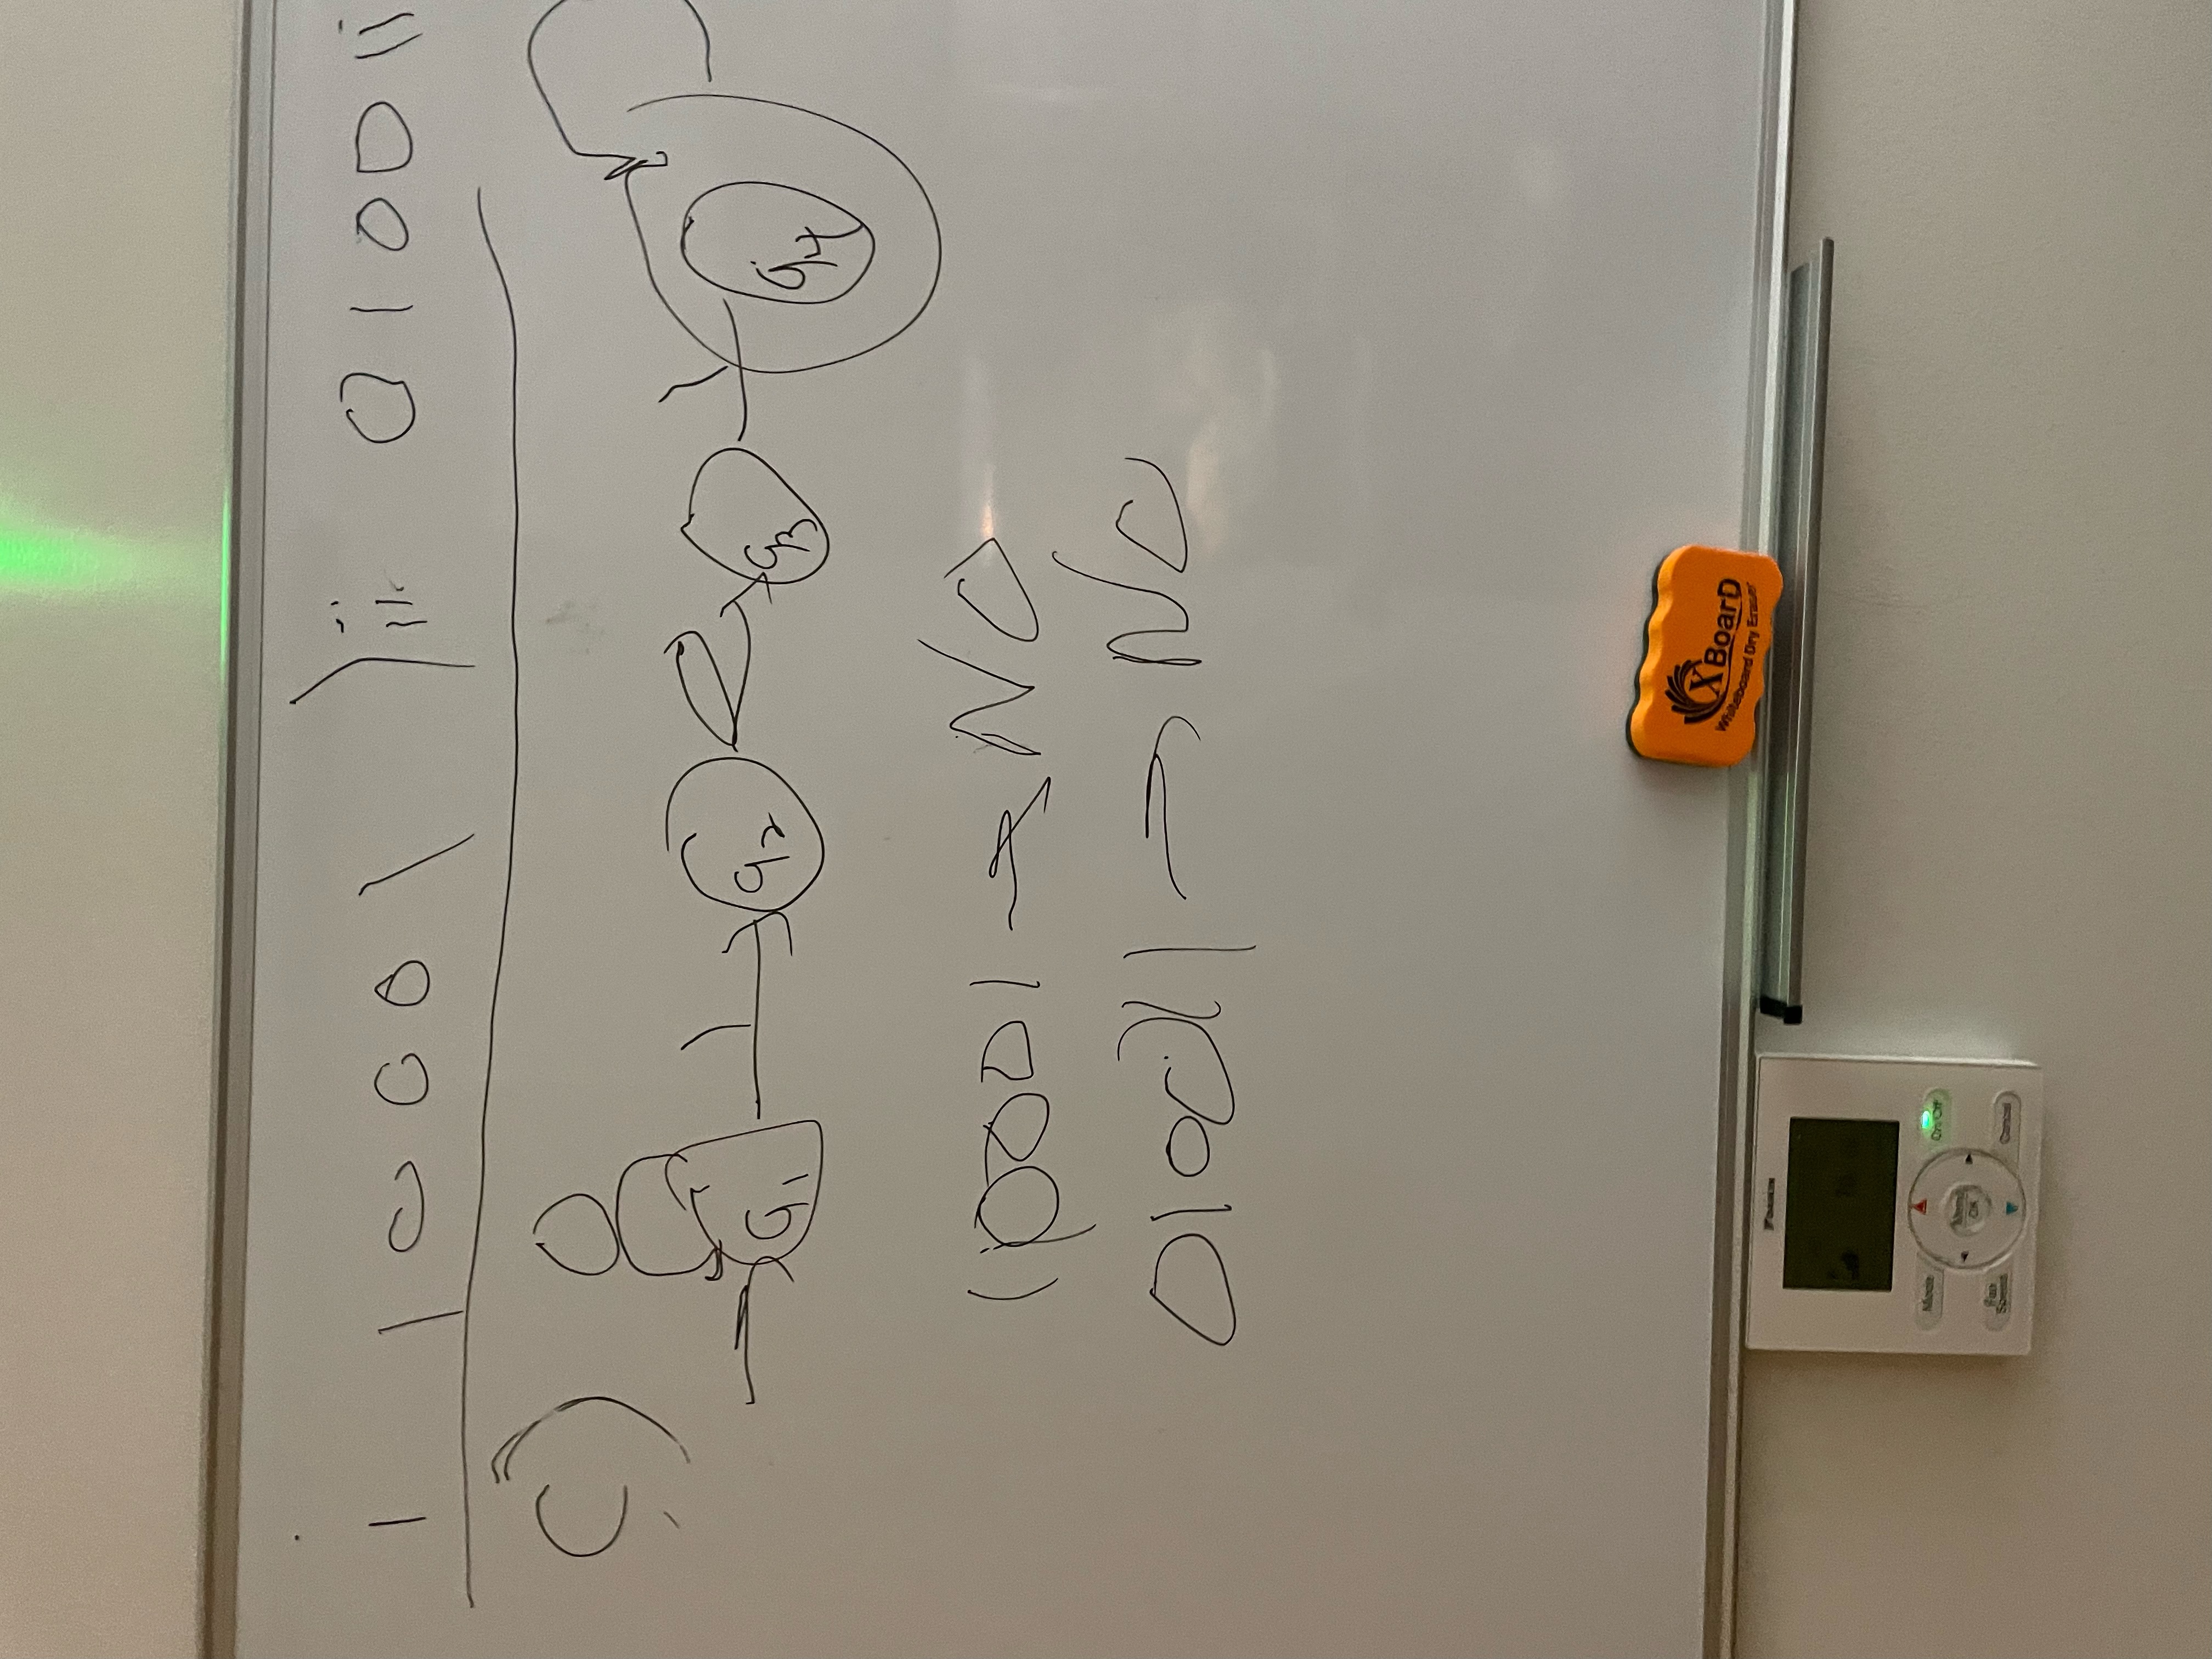 1 10001 ii 010011
C)
0
1 1
q1 q2 q3 q4
10001 → NO
010011 → NO
XBoarD
Whiteboard Dry Eraser
DAIKIN
Mode On/Off
Menu
OK
Fan
Speed Cancel